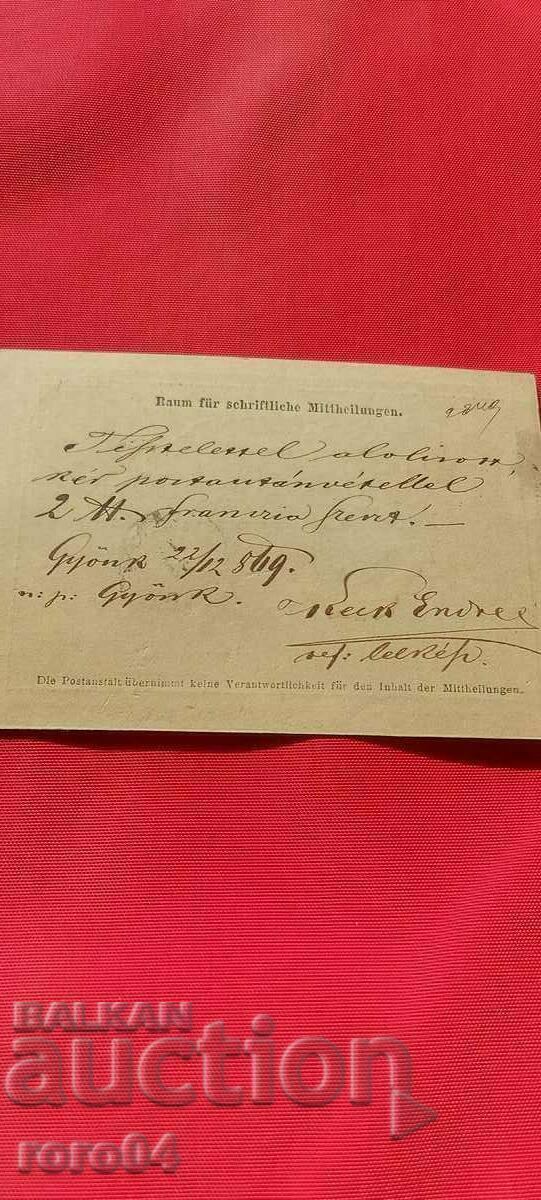 Raum für schriftliche Mittheilungen.
Tisztelettel alolirott
kér postautánvétellel
2 franczia
Gyönk 22/12 869.
n: p: Gyönk. Endre
ref: lelkész.
Die Postanstalt übernimmt keine Verantwortlichkeit für den Inhalt der Mittheilungen.
BALKAN
auction
roro04